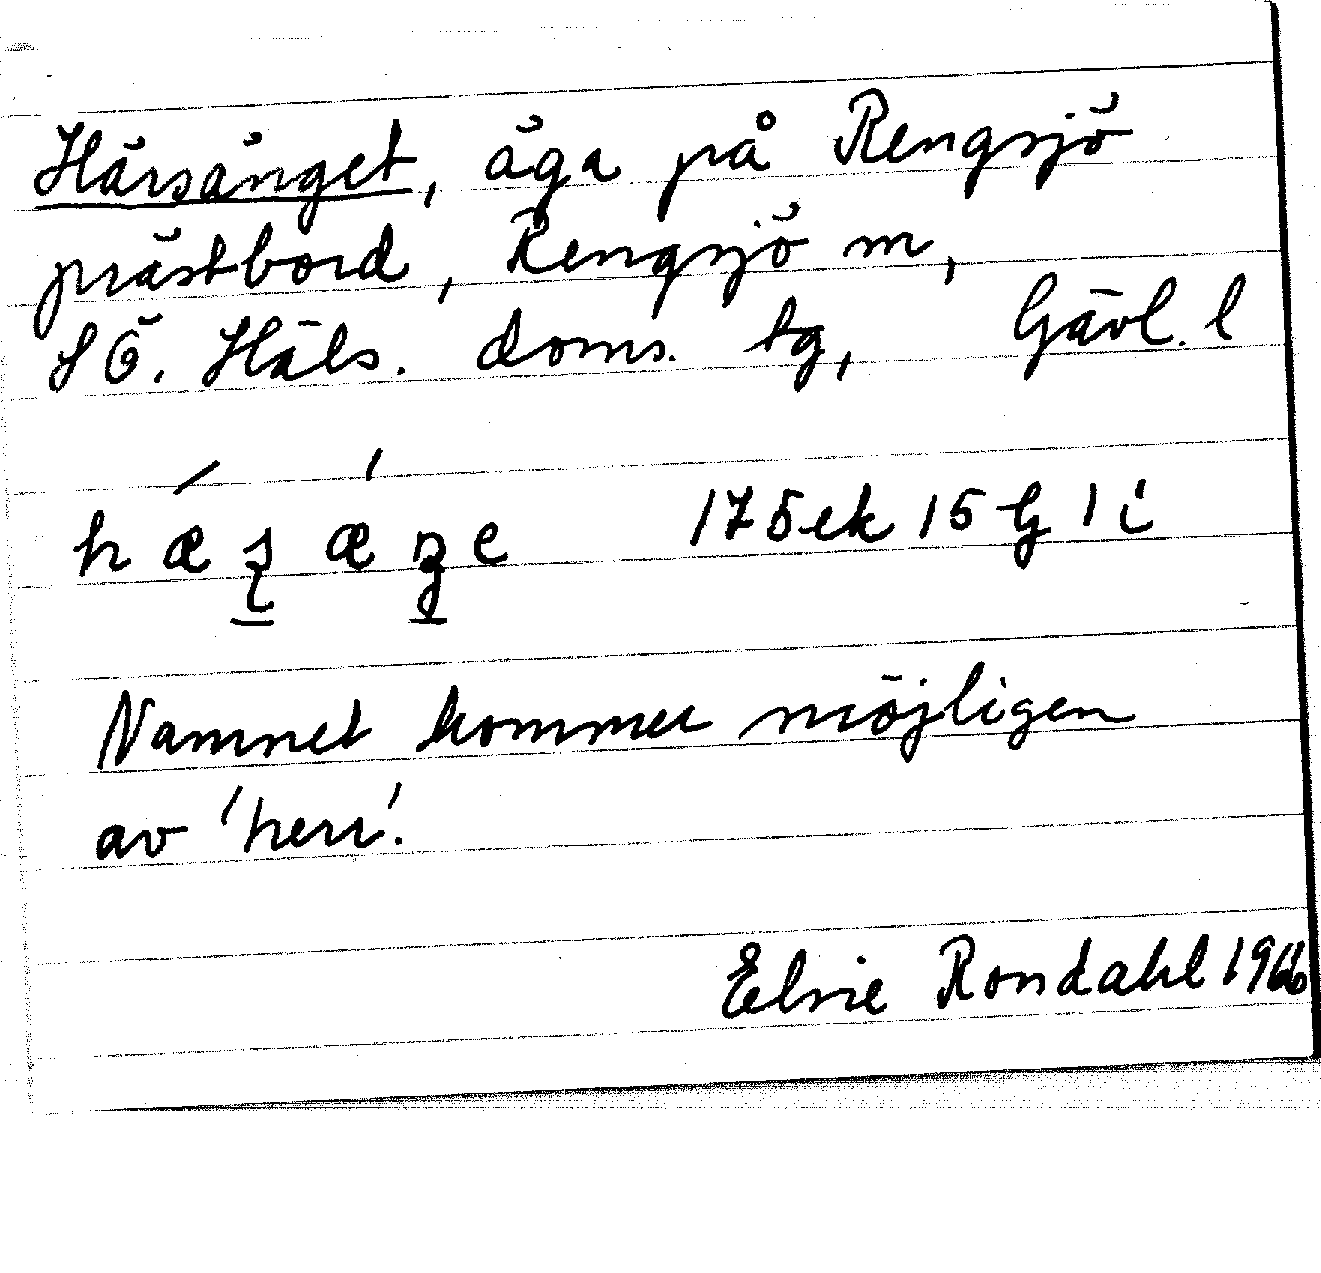 Härsänget, äga på Rengsjö
prästbord, Rengsjö m,
SÖ. Häls. doms. tg, Gävl. l
17 5 ek 15 G 1 i
Namnet kommer möjligen
av 'herr'.
Elsie Rondahl 1966